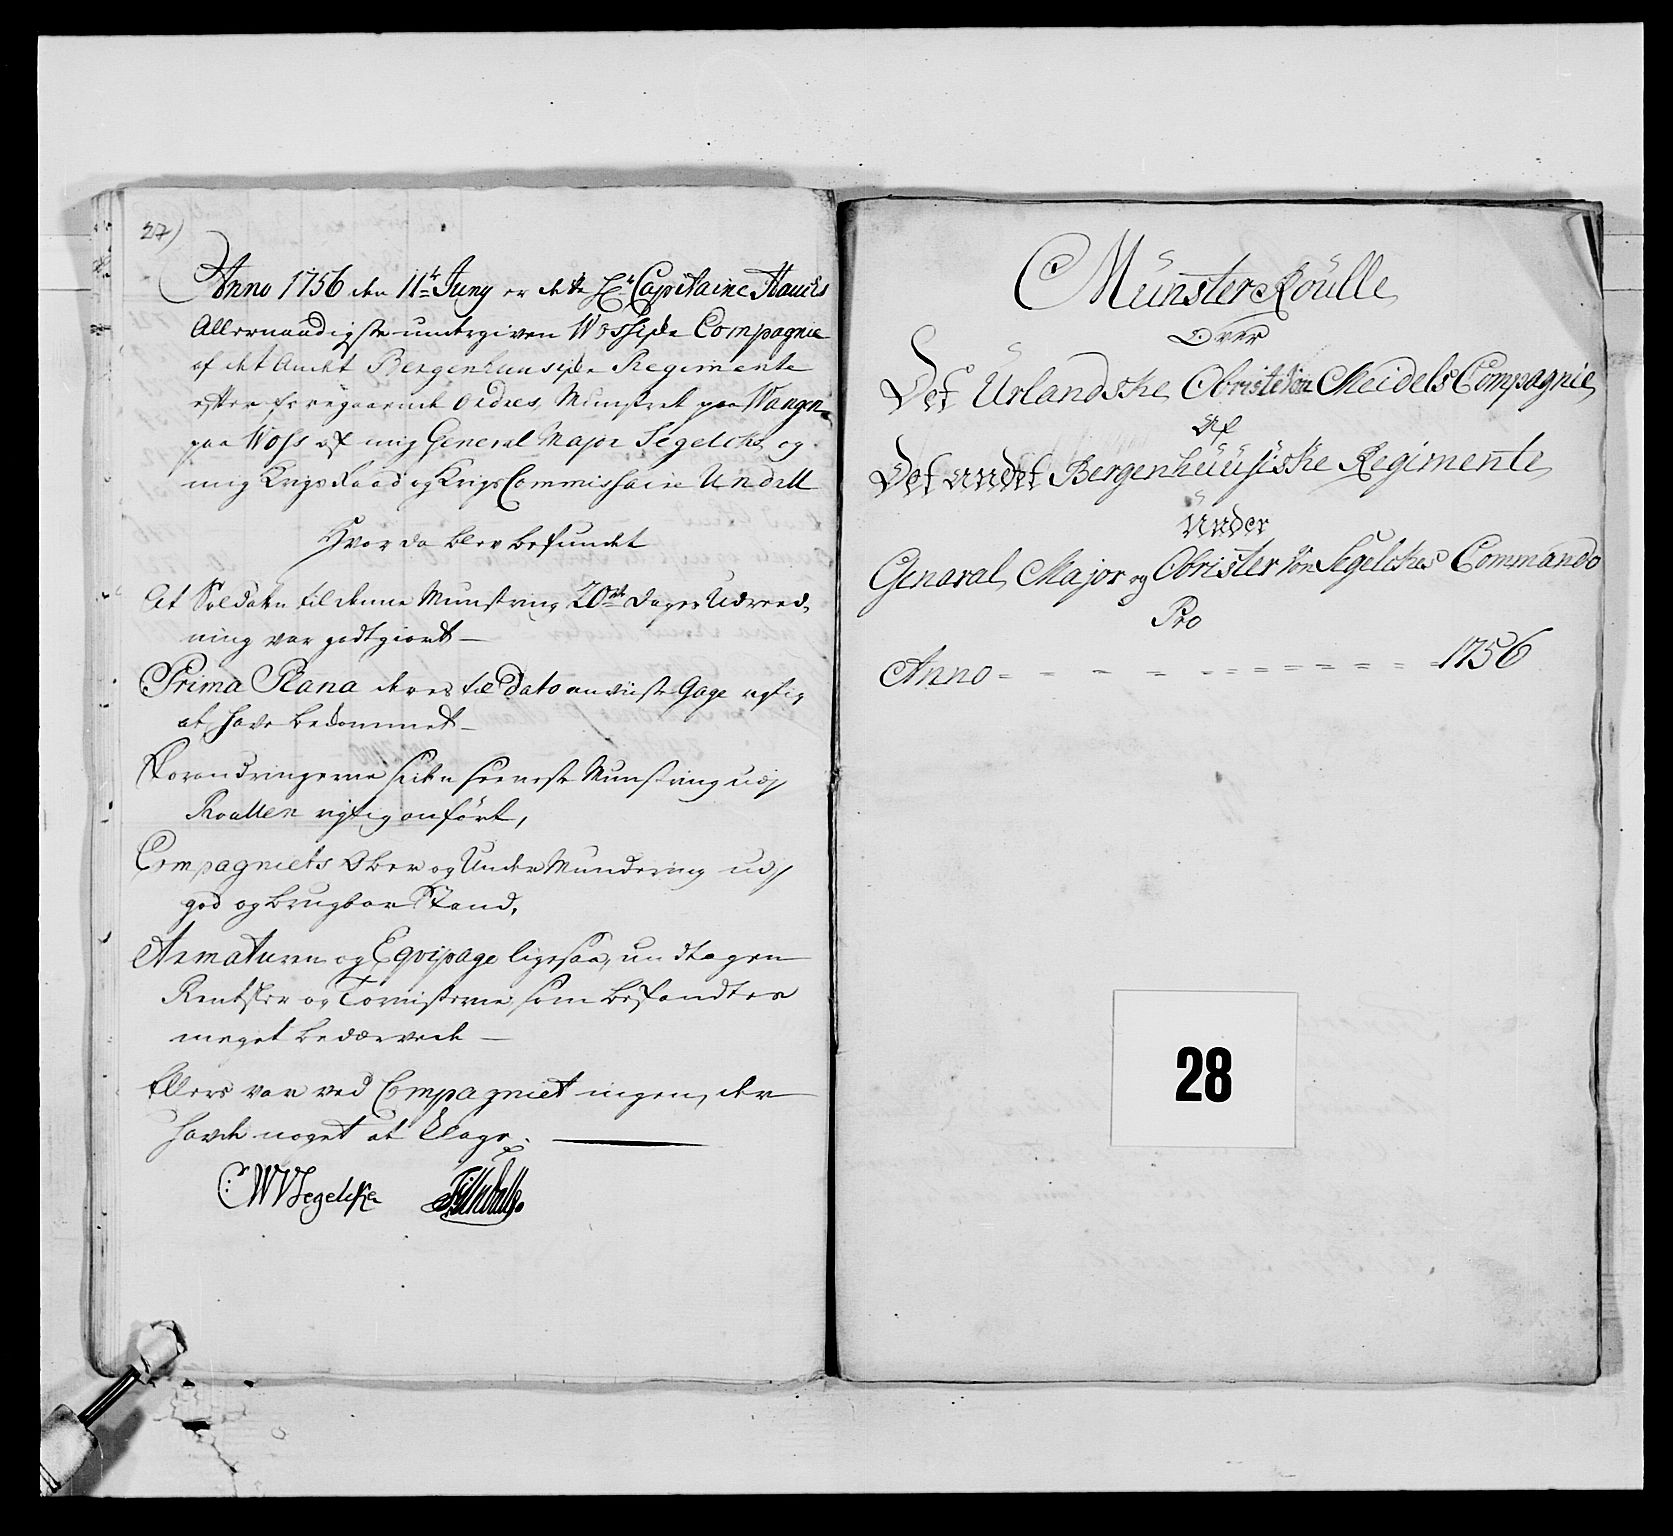 27)
Anno 1756 den 11te Juny er dette Hr Capitaine Hauchs
Allernaadigste untergiven Wossiske Compagnie
af det Andet Bergenhuusiske Regimente
efter foregaaende Ordres, Munstret paa Wangen
paa Woss af mig General Major Segelcke, og
mig Krigs Raad og Krigs Commissaire Undall
Hvor da blev befundet
At Soldaten til denne Munstring 20de dages Udreed-
ning var godtgiordt
Prima Plana deres til Dato anviiste Gage rigtig
at have bekommet
Forandringerne siden seeneste Munstring udj
Roullen rigtig anført,
Compagniets Ober og Under Mundering udj
god og brugbar Stand,
Armaturen og Eqvipage ligesaa, undtagen
Rentsler og Tornisterne som befandtes
meget bedærvede
Ellers var ved Compagniet ingen, der
havde noget at klage.
CWVSegelcke
Munster Roulle
Over
Det Urlandske Obriste Von Meidels Compagnie
Af
Det andet Bergenhuusiske Regimente
Under
General Major og Obrister Von Segelckes Commando
Pro
Anno 1756
28